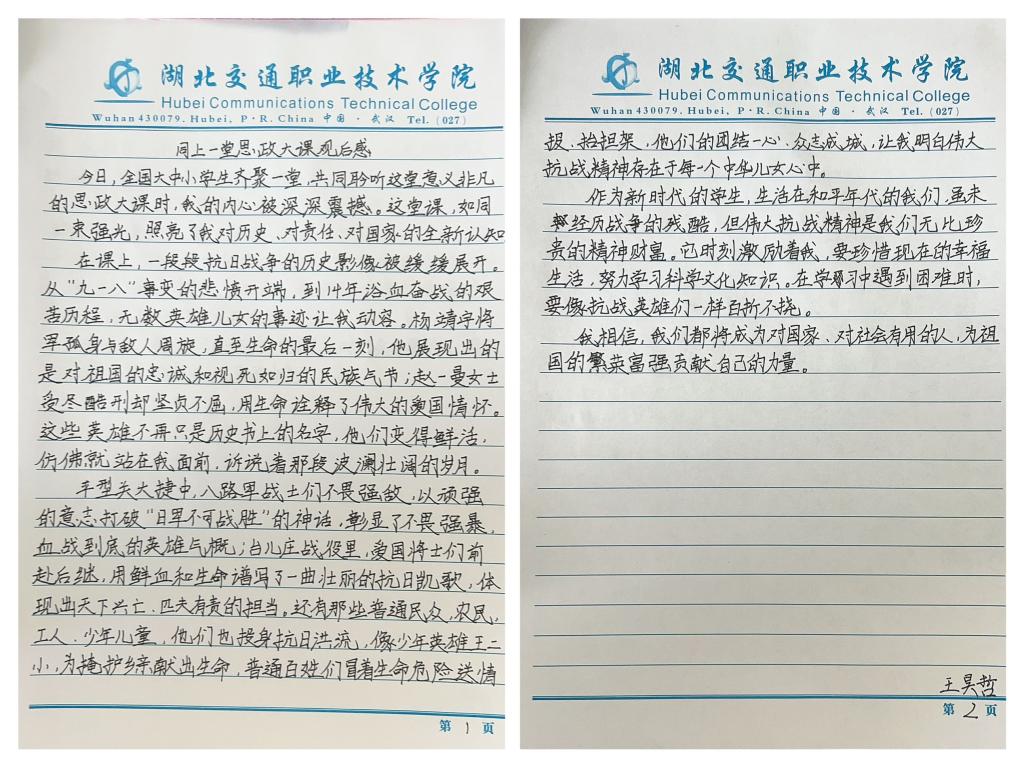 湖北交通职业技术学院
Hubei Communications Technical College
Wuhan 430079. Hubei, P·R. China 中国·武汉 Tel.(027)
同上一堂思政大课观后感
今日，全国大中小学生齐聚一堂，共同聆听这堂意义非凡
的思政大课时，我的内心被深深震撼。这堂课，如同
一束强光，照亮了我对历史、对责任、对国家的全新认知
在课上，一段段抗日战争的历史影像被缓缓展开。
从“九一八”事变的悲愤开端，到14年浴血奋战的艰
苦历程，无数英雄儿女的事迹让我动容。杨靖宇将
军孤身与敌人周旋，直至生命的最后一刻，他展现出的
是对祖国的忠诚和视死如归的民族气节；赵一曼女士
受尽酷刑却坚贞不屈，用生命诠释了伟大的爱国情怀。
这些英雄不再只是历史书上的名字，他们变得鲜活，
仿佛就站在我面前，诉说着那段波澜壮阔的岁月。
平型关大捷中，八路军战士们不畏强敌，以顽强
的意志打破“日军不可战胜”的神话，彰显了不畏强暴，
血战到底的英雄气概；台儿庄战役里，爱国将士们前
赴后继，用鲜血和生命谱写了一曲壮丽的抗日凯歌，体
现出天下兴亡、匹夫有责的担当。还有那些普通民众，农民，
工人、少年儿童，他们也投身抗日洪流，像少年英雄王二
小，为掩护乡亲献出生命，普通百姓们冒着生命危险送情
第 1 页
湖北交通职业技术学院
Hubei Communications Technical College
Wuhan 430079. Hubei, P·R. China 中国·武汉 Tel.(027)
报、抬担架，他们的团结一心、众志成城，让我明白伟大
抗战精神存在于每一个中华儿女心中。
作为新时代的学生，生活在和平年代的我们，虽未
经历战争的残酷，但伟大抗战精神是我们无比珍
贵的精神财富。它时刻激励着我，要珍惜现在的幸福
生活，努力学习科学文化知识。在学习中遇到困难时，
要像抗战英雄们一样百折不挠。
我相信，我们都将成为对国家、对社会有用的人，为祖
国的繁荣富强贡献自己的力量。
王昊哲
第 2 页